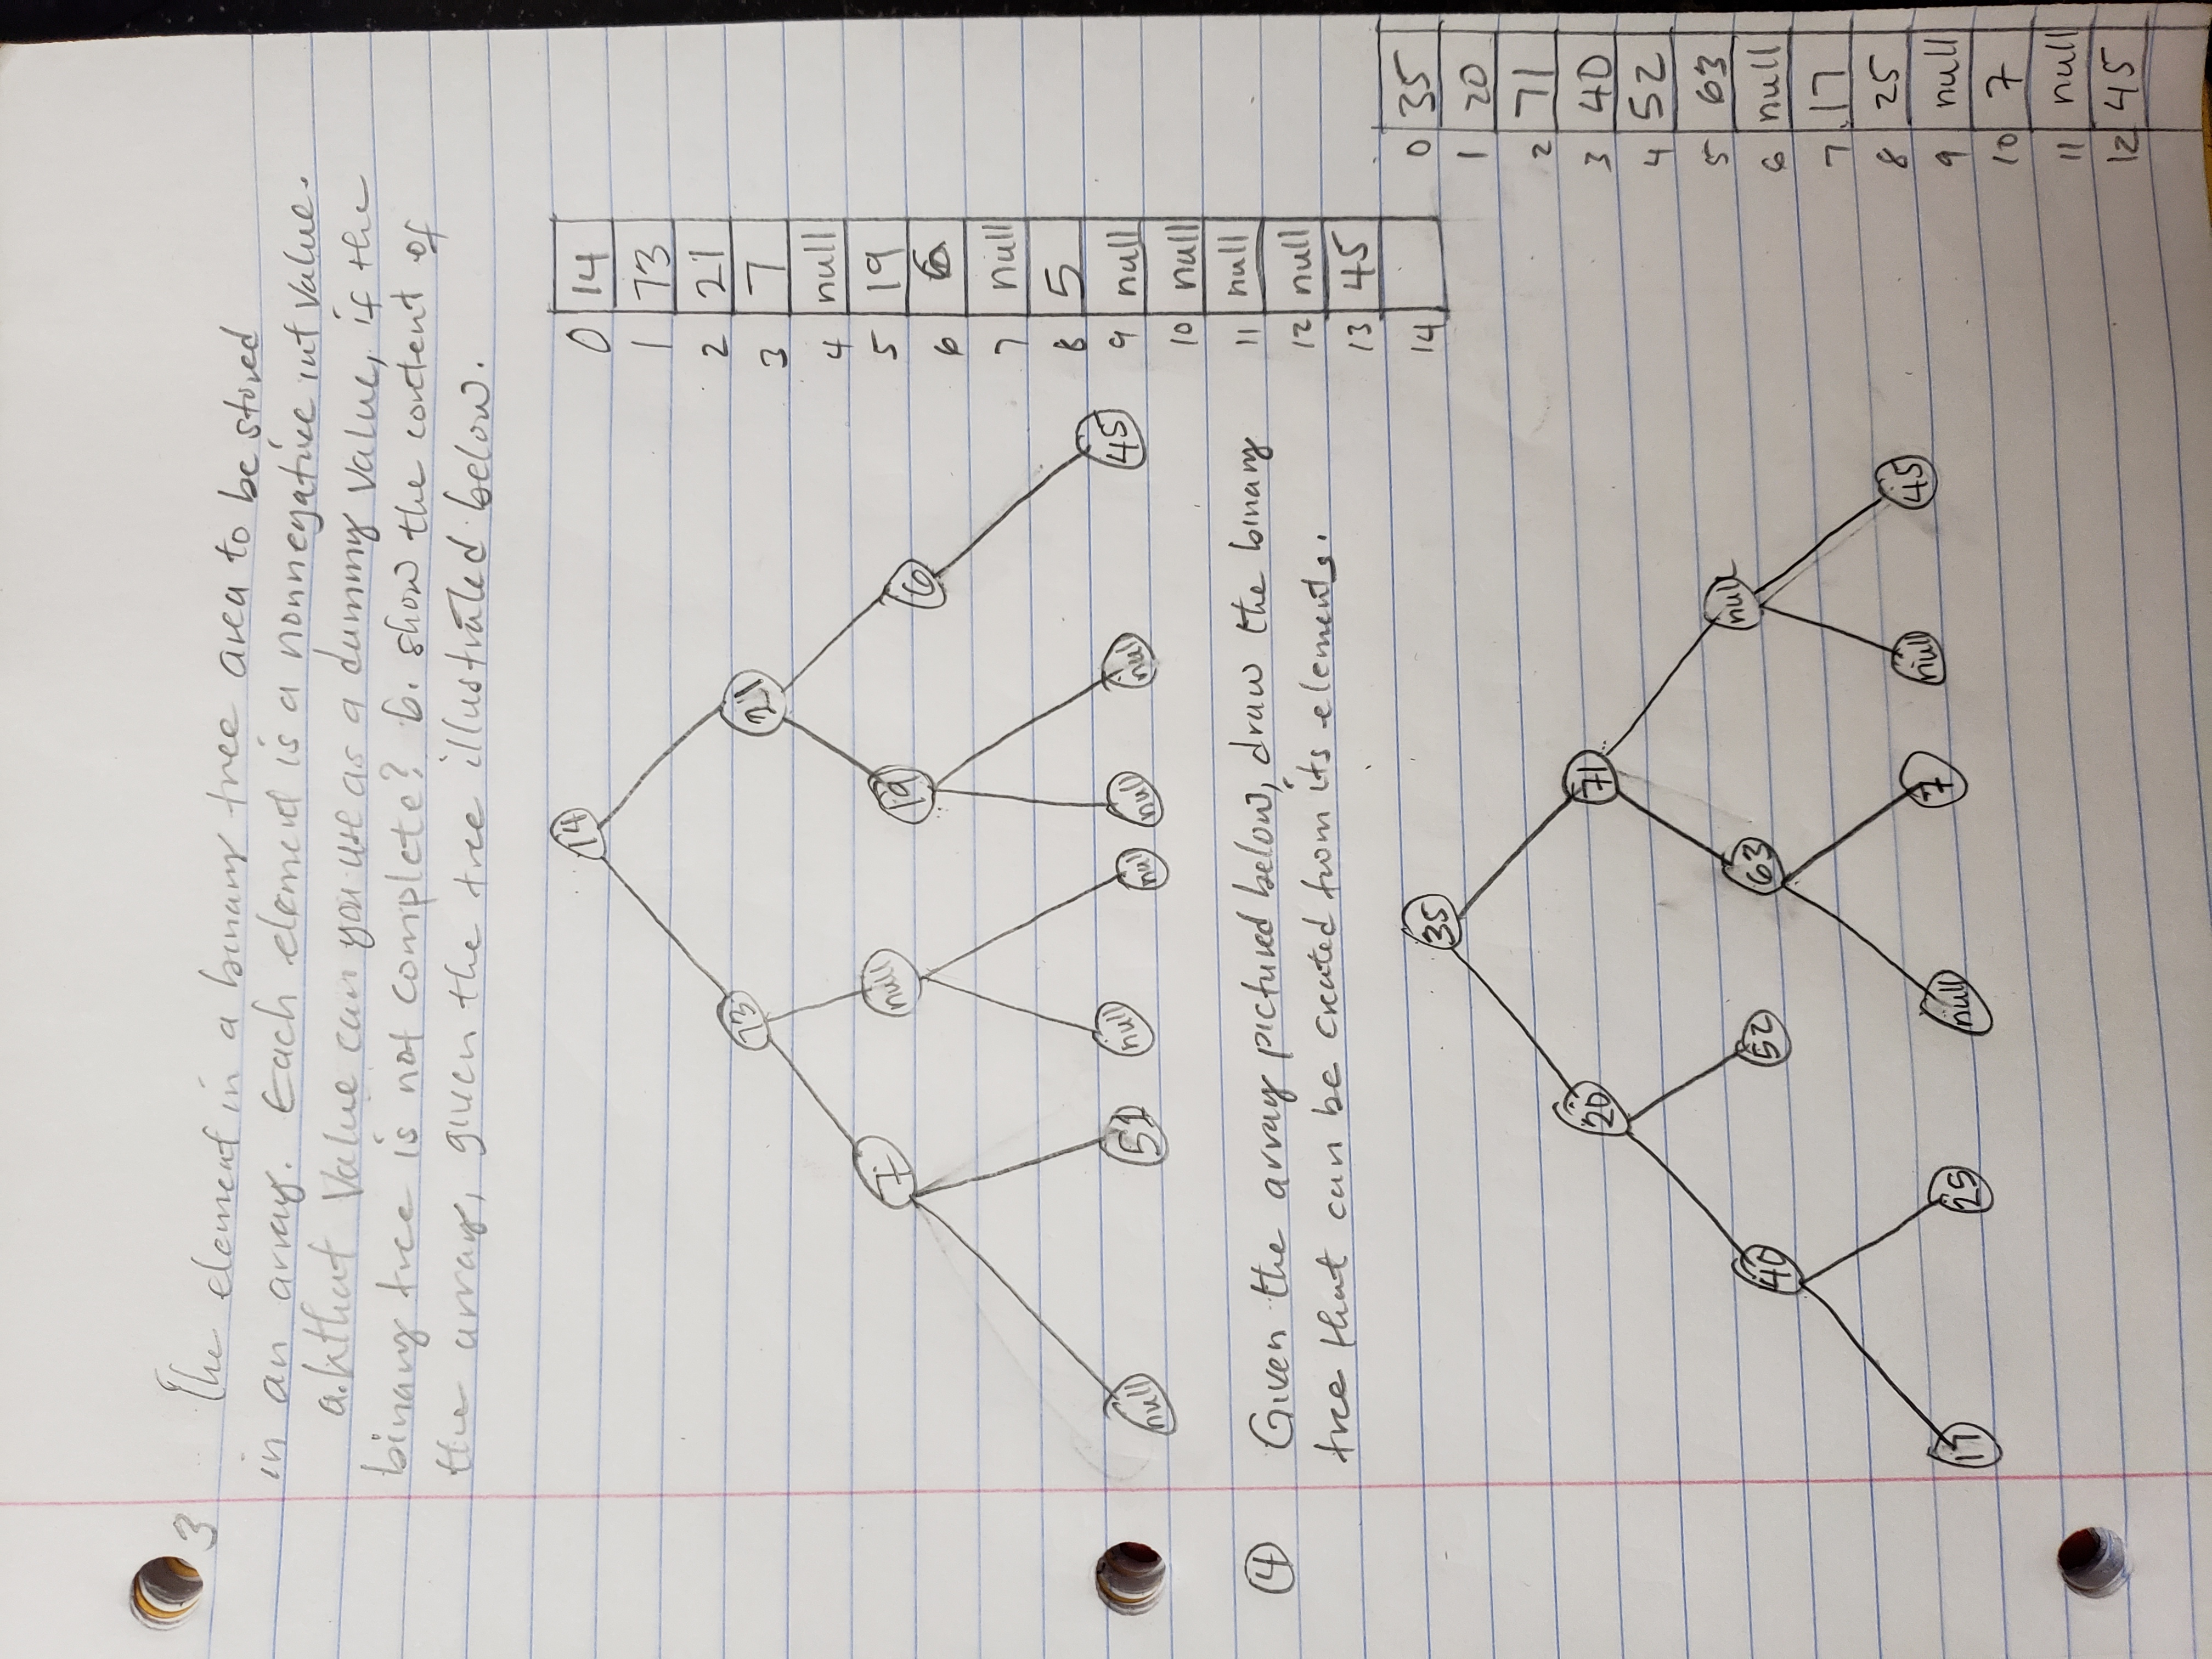 3 The element in a binary tree area to be stored
in an array. Each element is a nonnegative int value.
a. What value can you use as a dummy value, if the
binary tree is not complete? b. show the content of
the array, given the tree illustrated below.
14
73 21
7 null 19 6
null 51 null null null null 45
0 14
1 73
2 21
3 7
4 null
5 19
6 6
7 null
8 5
9 null
10 null
11 null
12 null
13 45
14
4 Given the array pictured below, draw the binary
tree that can be created from its elements.
35
20 71
40 52 63 null
17 25 null 7 null 45
0 35
1 20
2 71
3 40
4 52
5 63
6 null
7 17
8 25
9 null
10 7
11 null
12 45